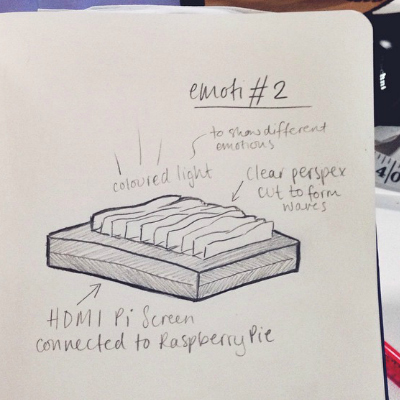 emoti #2
to show different
emotions
coloured light
clear perspex
cut to form
waves
HDMI Pi Screen
connected to Raspberry Pie